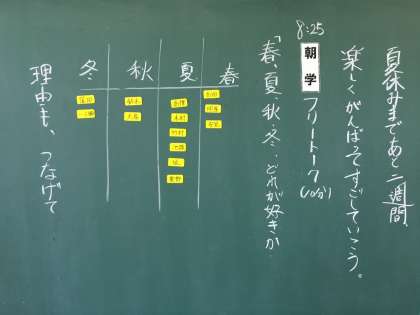 夏休みまであと二週間、
楽しくがんばってすごしていこう。
8:25
朝学 フリートーク(10分)
「春、夏、秋、冬、どれが好きか
春
夏
木村
竹村
池田
星野
秋
鈴木
大谷
冬
理由も、つなげて